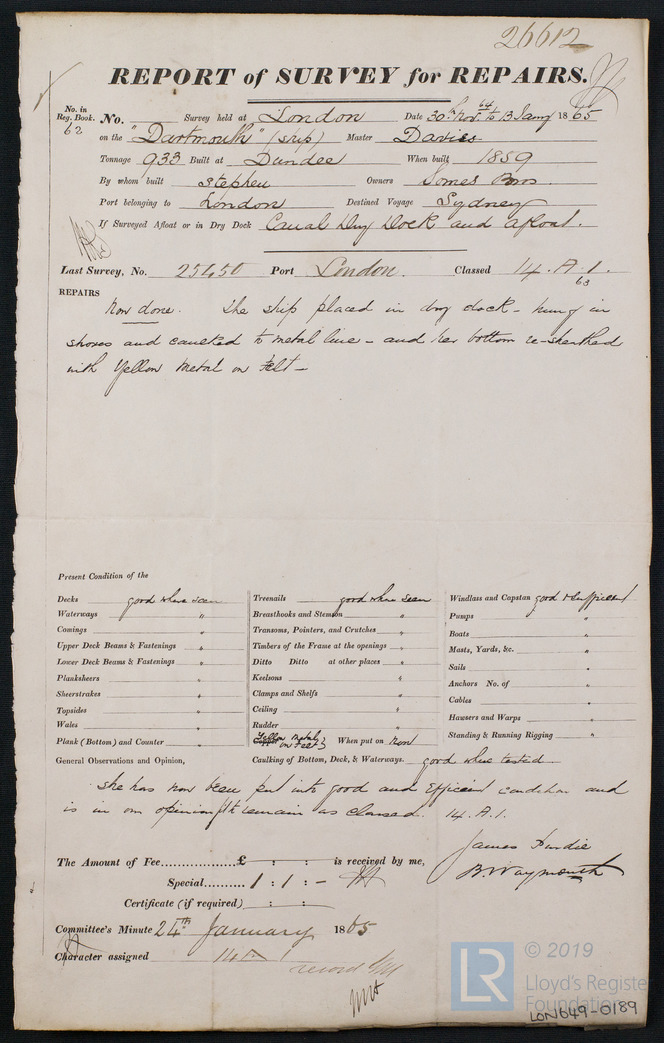 26612
REPORT of SURVEY for REPAIRS.
No. in Reg. Book. 62 No. Survey held at London Date 30th Novr. 64 to 13 Jany 1865
on the "Dartmouth" (ship) Master Davies
Tonnage 933 Built at Dundee When built 1859
By whom built Stephen Owners Somes Bros.
Port belonging to London Destined Voyage Sydney
If Surveyed Afloat or in Dry Dock Canal Dry Dock and afloat.
Last Survey, No. 25450 Port London. Classed 14. A. 1. 63
REPAIRS
Now done. The ship placed in dry dock - hung in
shores and caulked to metal line - and her bottom re-sheathed
with Yellow Metal on Felt -
Present Condition of the
Decks good where seen Treenails good where seen Windlass and Capstan good & efficient
Waterways " Breasthooks and Stemson " Pumps "
Comings " Transoms, Pointers, and Crutches " Boats "
Upper Deck Beams & Fastenings " Timbers of the Frame at the openings " Masts, Yards, &c. "
Lower Deck Beams & Fastenings " Ditto Ditto at other places " Sails "
Planksheers " Keelsons " Anchors No. of "
Sheerstrakes " Clamps and Shelfs " Cables "
Topsides " Ceiling " Hawsers and Warps "
Wales " Rudder " Standing & Running Rigging "
Plank (Bottom) and Counter " Copper Yellow Metal on Felt } When put on now
General Observations and Opinion, Caulking of Bottom, Deck, & Waterways. good where tested.
She has now been put into good and efficient condition and
is in our opinion fit to remain as classed. 14. A. 1.
James Hardie
B. Waymouth
The Amount of Fee £ : : is received by me,
Special 1 : 1 : -
Certificate (if required) : :
Committee's Minute 24th January 1865
Character assigned 14 A 1
record
© 2019
LR Lloyd's Register Foundation
LON649-0189